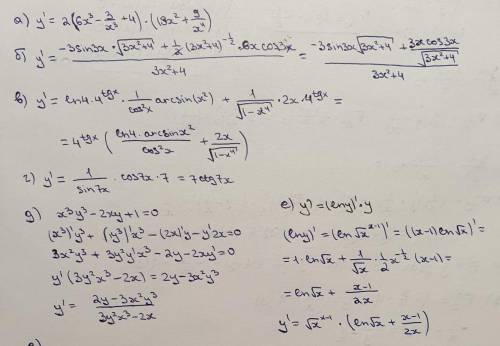 а) y' = 2(6x³ - 3/x³ + 4) · (18x² + 9/x⁴)
б) y' = (-3sin3x · √(3x²+4) + 1/2 (3x²+4)^(-1/2) · 6x cos3x) / (3x²+4) = (-3sin3x √(3x²+4) + 3x cos3x / √(3x²+4)) / (3x²+4)
в) y' = ln4 · 4^(tgx) · 1/cos²x arcsin(x²) + 1/√(1-x⁴) · 2x · 4^(tgx) =
= 4^(tgx) (ln4 · arcsinx² / cos²x + 2x / √(1-x⁴))
г) y' = 1/sin7x · cos7x · 7 = 7ctg7x
д) x³y³ - 2xy + 1 = 0
(x³)'y³ + (y³)'x³ - (2x)'y - y'2x = 0
3x²y³ + 3y²y'x³ - 2y - 2xy' = 0
y'(3y²x³ - 2x) = 2y - 3x²y³
y' = (2y - 3x²y³) / (3y²x³ - 2x)
е) y' = (lny)' · y
(lny)' = (ln√x^(x-1))' = ((x-1)ln√x)' =
= 1 · ln√x + 1/√x · 1/2 x^(-1/2) (x-1) =
= ln√x + (x-1)/2x
y' = √x^(x-1) · (ln√x + (x-1)/2x)